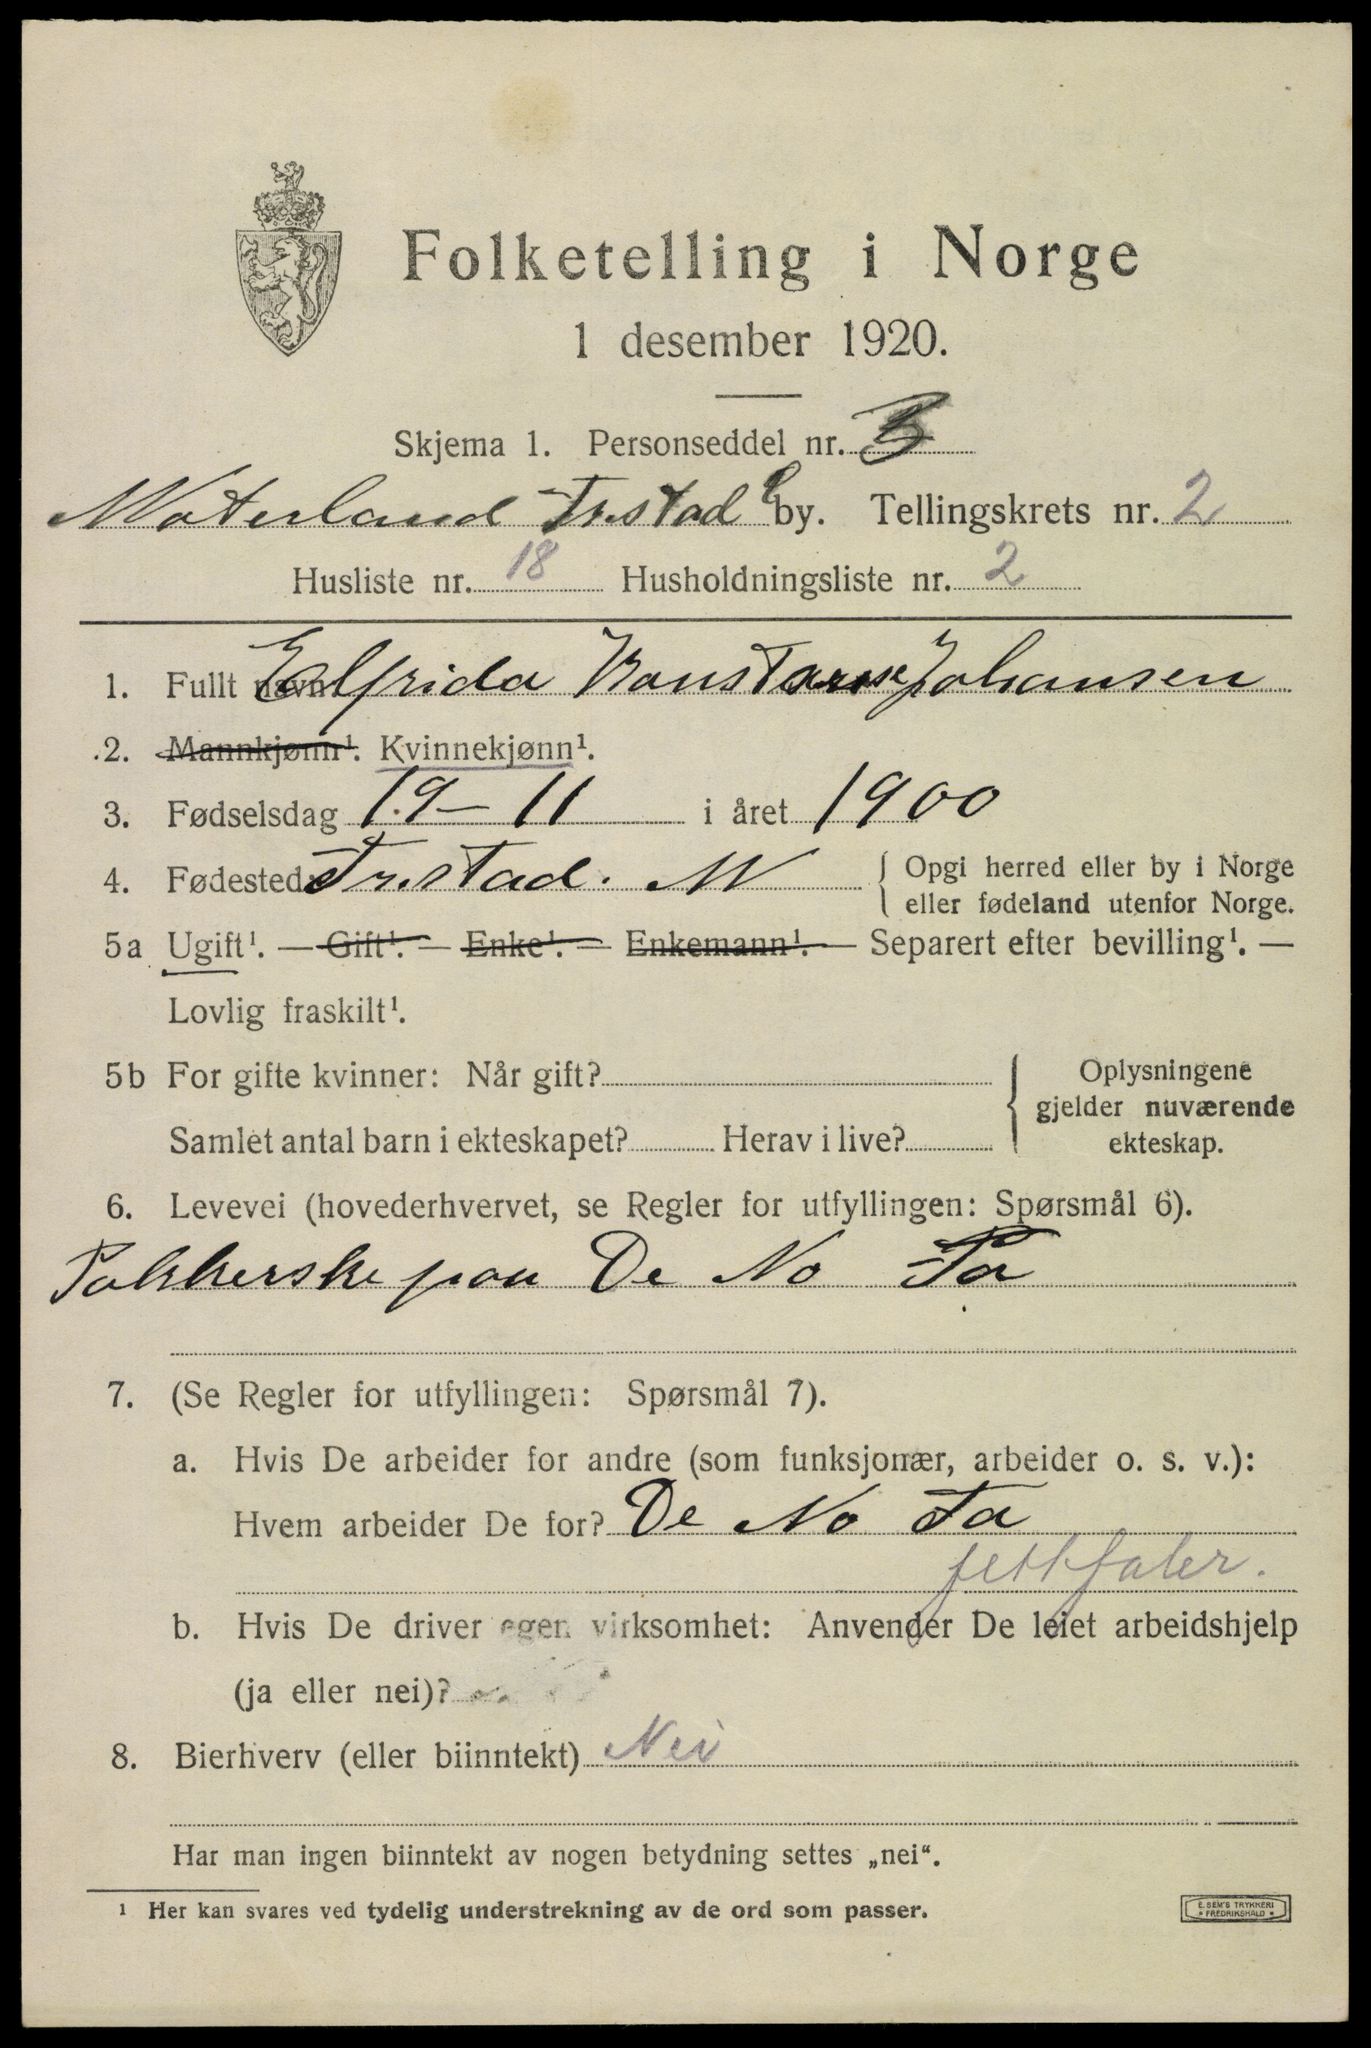 Folketelling i Norge
1 desember 1920.
Skjema 1. Personseddel nr. 3
Materland Fr.stad by. Tellingskrets nr. 2
Husliste nr. 18 Husholdningsliste nr. 2
1. Fullt navn Elfrida Johansen
2. Mannkjønn¹. Kvinnekjønn¹.
3. Fødselsdag 19-11 i året 1900
4. Fødested Fr.stad. N { Opgi herred eller by i Norge
eller fødeland utenfor Norge.
5a Ugift¹. — Gift¹. — Enke¹. — Enkemann¹. — Separert efter bevilling¹. —
Lovlig fraskilt¹.
5b For gifte kvinner: Når gift? { Oplysningene
gjelder nuværende
Samlet antal barn i ekteskapet? Herav i live? ekteskap.
6. Levevei (hovederhvervet, se Regler for utfyllingen: Spørsmål 6).
Pakkerske paa De No Fa
7. (Se Regler for utfyllingen: Spørsmål 7).
a. Hvis De arbeider for andre (som funksjonær, arbeider o. s. v.):
Hvem arbeider De for? De No Fa
b. Hvis De driver egen virksomhet: Anvender De leiet arbeidshjelp
(ja eller nei)?
8. Bierhverv (eller biinntekt) Nei
Har man ingen biinntekt av nogen betydning settes „nei“.
¹ Her kan svares ved tydelig understrekning av de ord som passer.
E. SEM'S TRYKKERI
* FREDRIKSHALD *